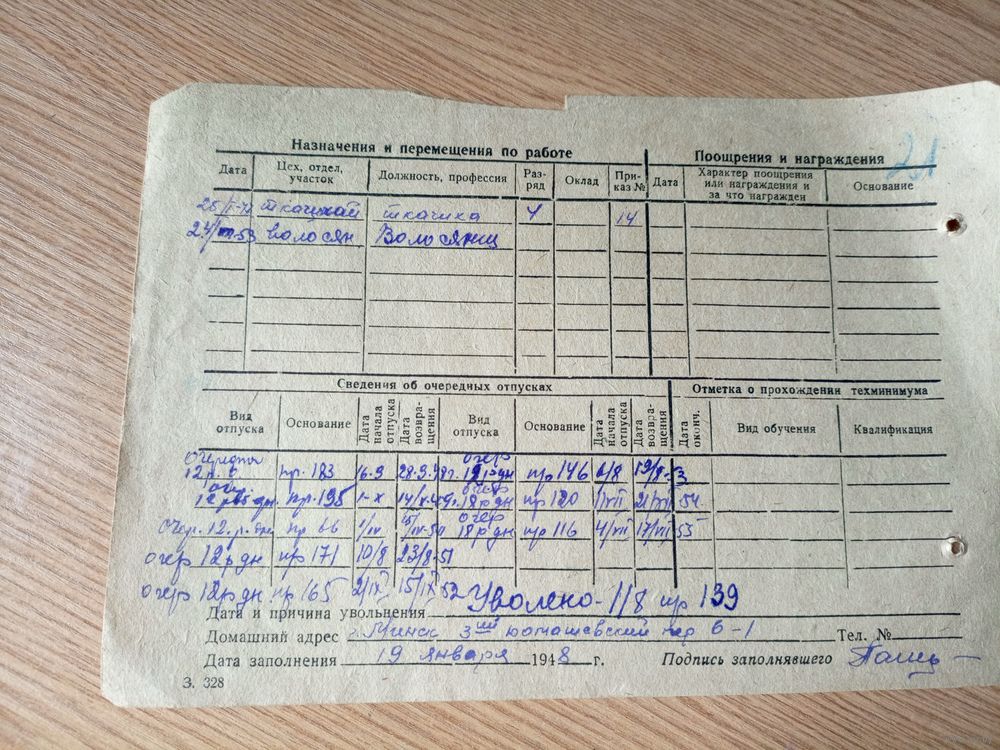 21
Назначения и перемещения по работе Поощрения и награждения
Дата Цех, отдел, участок Должность, профессия Раз-ряд Оклад При-каз № Дата Характер поощрения или награждения и за что награжден Основание
ткачиха 4 14
волосян Волосянщ
Сведения об очередных отпусках Отметка о прохождении техминимума
Вид отпуска Основание Дата начала отпуска Дата возвра-щения Вид отпуска Основание Дата начала отпуска Дата возвра-щения Дата оконч. Вид обучения Квалификация
12 пр. 183 16.9 28.9. очер 12 р дн пр 146 1/8 19/8-53
пр. 195 очер 18 р дн пр 120 1/VII 21/VII 54.
Очер. 12. р. дн пр 66 1/IV 15/IV-50 очер 18 р дн пр 116 4/VII 17/VII 55
очер 12 р дн пр 171 10/8 23/8-51
очер 12 р дн пр 165 2/IX 15/IX 52
Дата и причина увольнения Уволено-1/8 пр 139
Домашний адрес г. Минск 3ий пер 6-1 Тел. №
Дата заполнения 19 января 1948 г. Подпись заполнявшего
З. 328